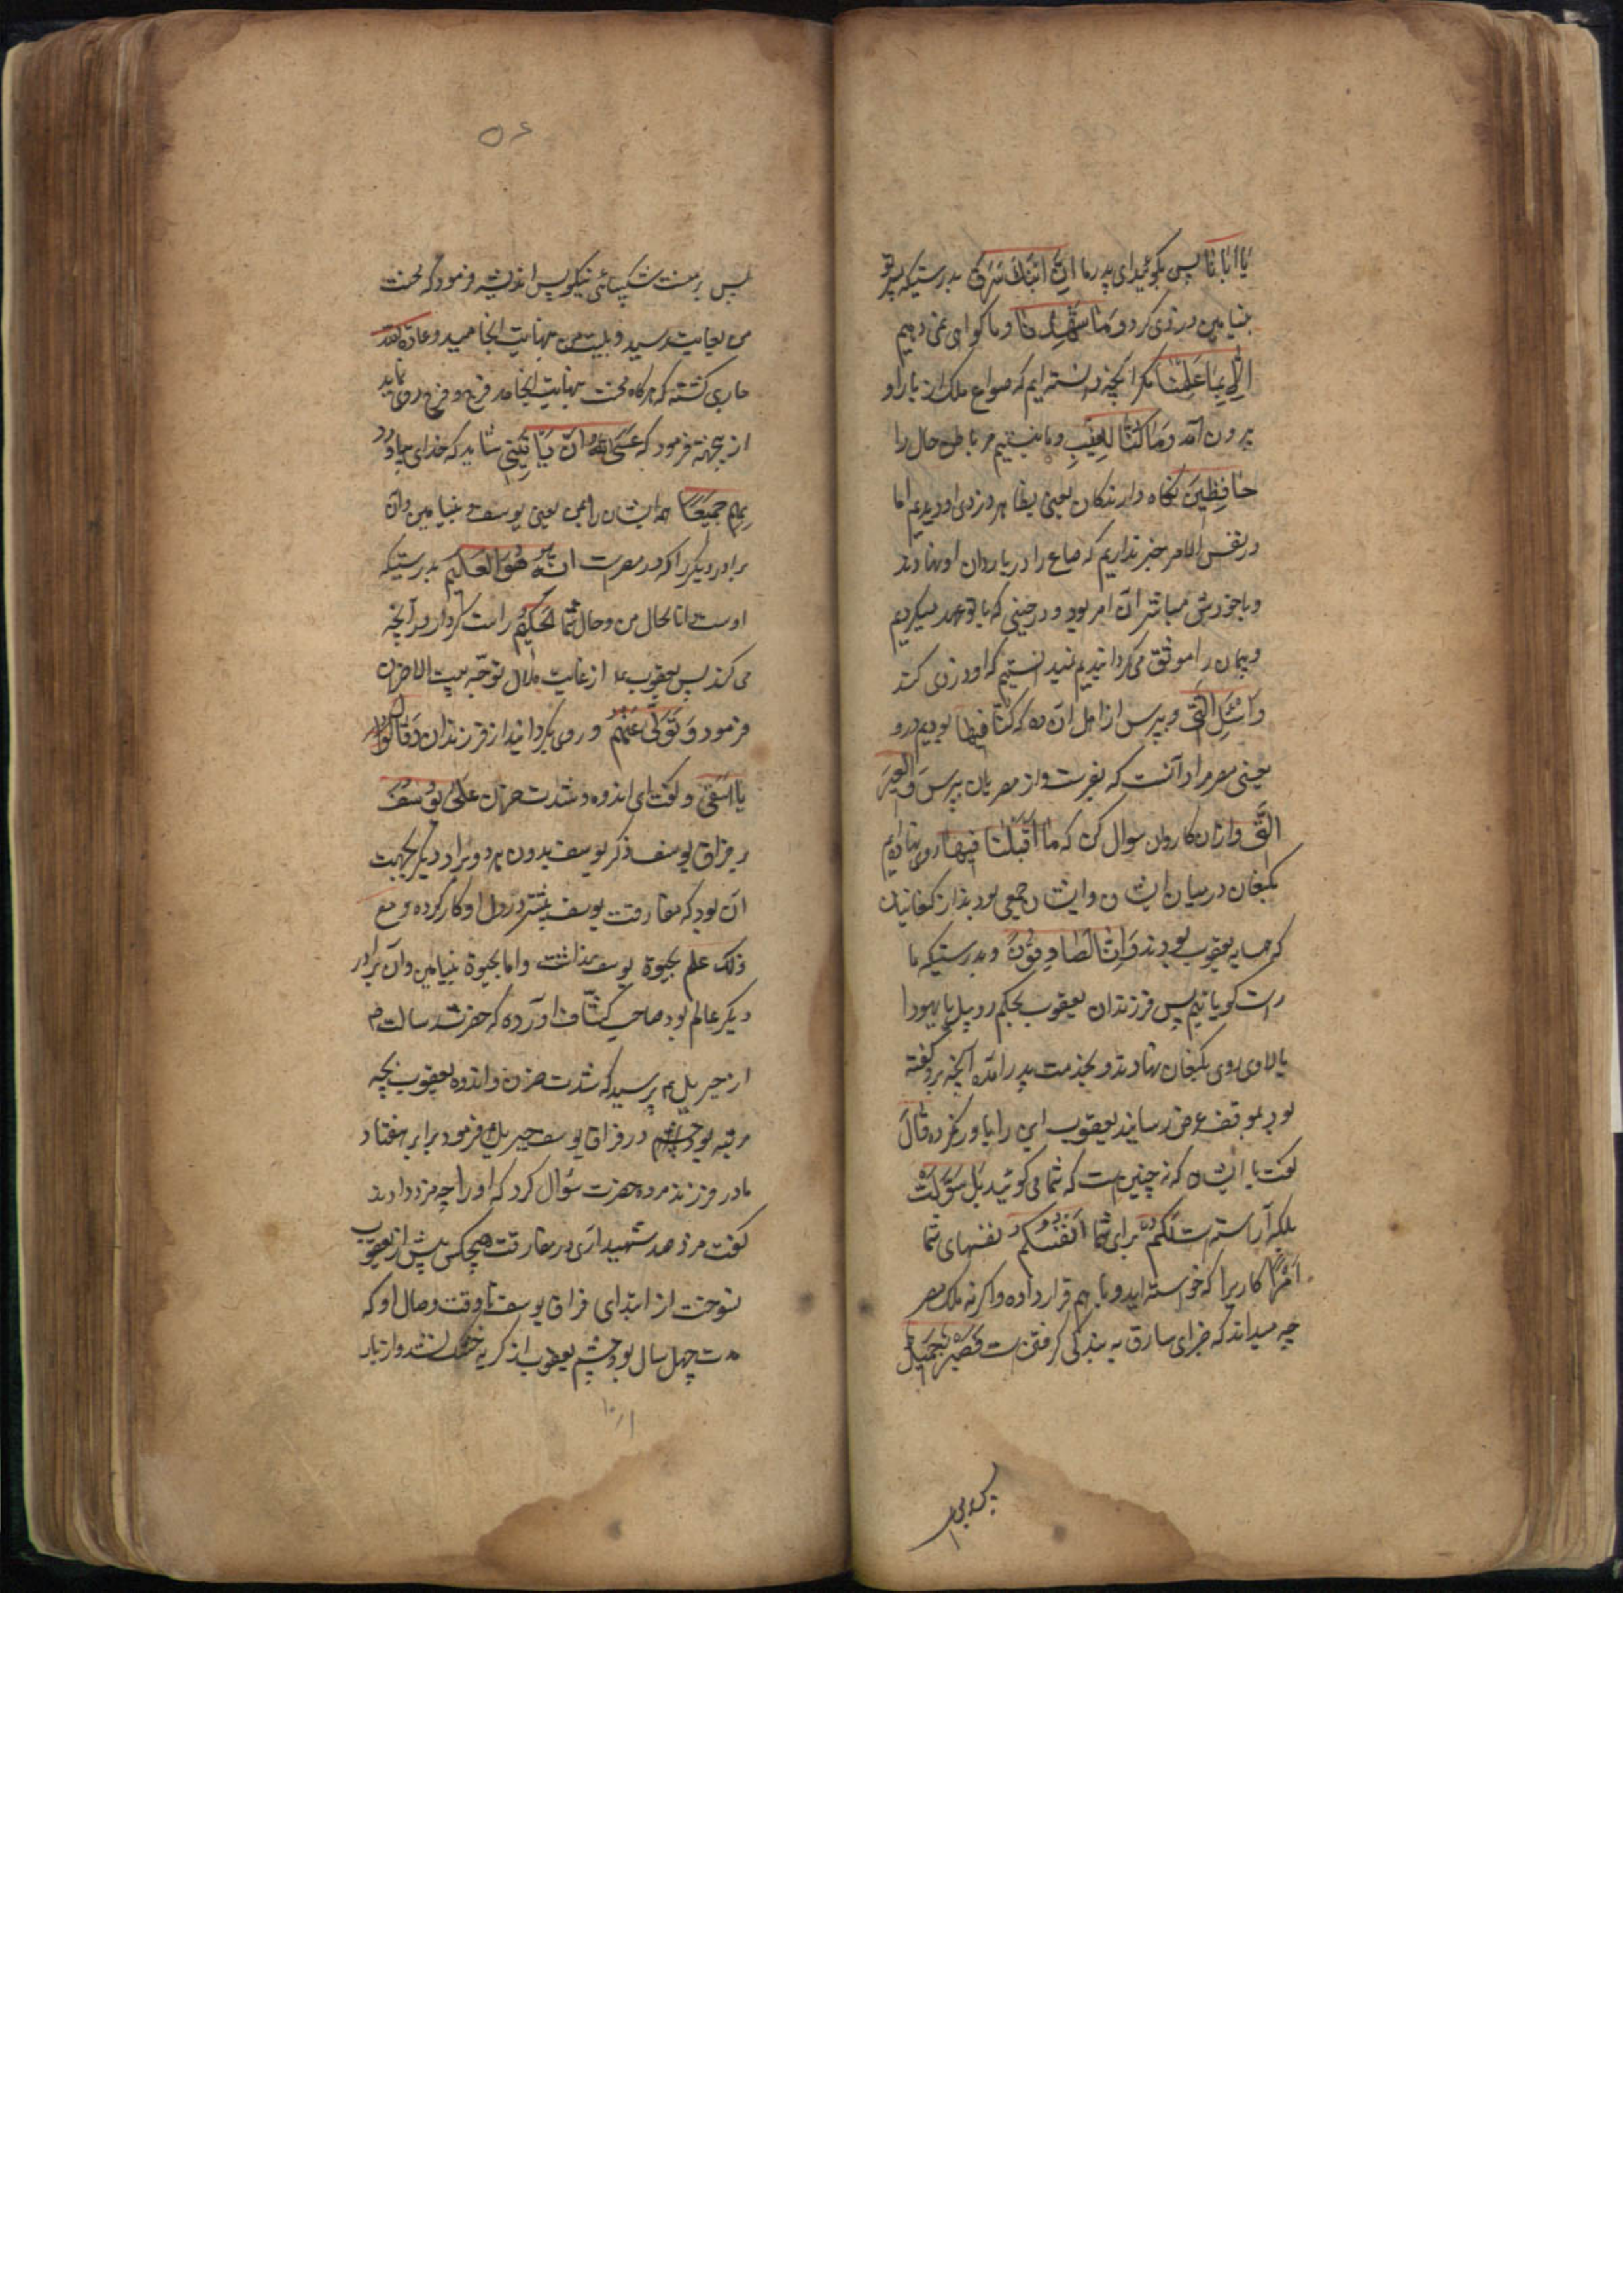 یا ابانا پس بگوئید ای پدر ما ان ابنک سرق بدرستیکه پسر تو
بنیامین دزدی کرد و ما شهدنا و ما گواهی نمی دهیم
الا بما علمنا مگر آنچه دانسته ایم که صواع ملک از بار او
برون آمد و ما کنا للغیب و ما نیستیم مر باطن حال را
حافظین نگاه دارندگان یعنی بظاهر دزدی او دیدیم اما
در نفس الامر خبر نداریم که صاع را در بار وان او نهادند
و یا خود پیش مباشر آن امر بود و در حینی که با تو عهد میکردیم
و پیمان را موثق می گردانیدیم نمیدانستیم که او دزدی کند
و اسئل القریة و بپرس از اهل آن ده که کنا فیها بودیم درو
یعنی مصر مراد آنست که بفرست و از مصریان بپرس و العیر
التی و از آن کاروان سوال کن که ما اقبلنا فیها روی نهاده ایم
بکنعان در میان ایشان و ایشان جمعی بودند از کنعانیان
که همسایه یعقوب بودند و انا لصادقون و بدرستیکه ما
راست گویانیم پس فرزندان یعقوب بحکم روبیل یا یهودا
یا لاوی روی بکنعان نهادند و بخدمت پدر آمده آنچه برو گفته
بود بموقف عرض رسانید یعقوب این را باور نکرده قال
گفت با ایشان که نه چنین است که شما می گوئید بل سولت
بلکه آراسته است لکم برای شما انفسکم نفسهای شما
امرا کاریرا که خواسته اید و با هم قرار داده و اگر نه ملک مصر
چه میداند که جزای سارق به بندگی گرفتن است فصبر جمیل
۵۶
پس بر منست شکیبائی نیکو پس اندیشه فرمود که محنت
من بغایت رسید و بلیت من بنهایت انجامید و عادة الله
جاری گشته که هرگاه محنت بنهایت انجامد فرج و فرح روی نماید
از ینجهته فرمود که عسی الله ان یاتینی شاید که خدای بیاورد
بهم جمیعا همه ایشان را بمن یعنی یوسف و بنیامین و آن
برادر دیگر را که در مصر است انه هو العلیم بدرستیکه
اوست دانا بحال من و حال شما الحکیم راست کردار در آنچه
می کند پس یعقوب ع از غایت ملال توجه ببیت الاحزان
فرمود و تولی عنهم و روی بگردانید از فرزندان و قال
یا اسفی و گفت ای اندوه و شدت حزن علی یوسف
بر فراق یوسف ذکر یوسف بدون هر دو برادر دیگر بجهت
آن بود که مفارقت یوسف بیشتر در دل او کار کرده و مع
ذلک علم بحیوة یوسف نداشت و اما بحیوة بنیامین و آن برادر
دیگر عالم بود صاحب کشاف آورده که حضرت رسالت
از جبریل پرسید که شدت حزن و اندوه یعقوب بچه
مرتبه بود در فراق یوسف جبریل فرمود برابر هفتاد
مادر فرزند مرده حضرت سؤال کرد که او را چه مزد دادند
گفت مزد صد شهید آری در مفارقت هیچکس پیش از یعقوب
نسوخت از ابتدای فراق یوسف تا وقت وصال او که
مدت چهل سال بود چشم یعقوب از گریه خشک نشد و از بار